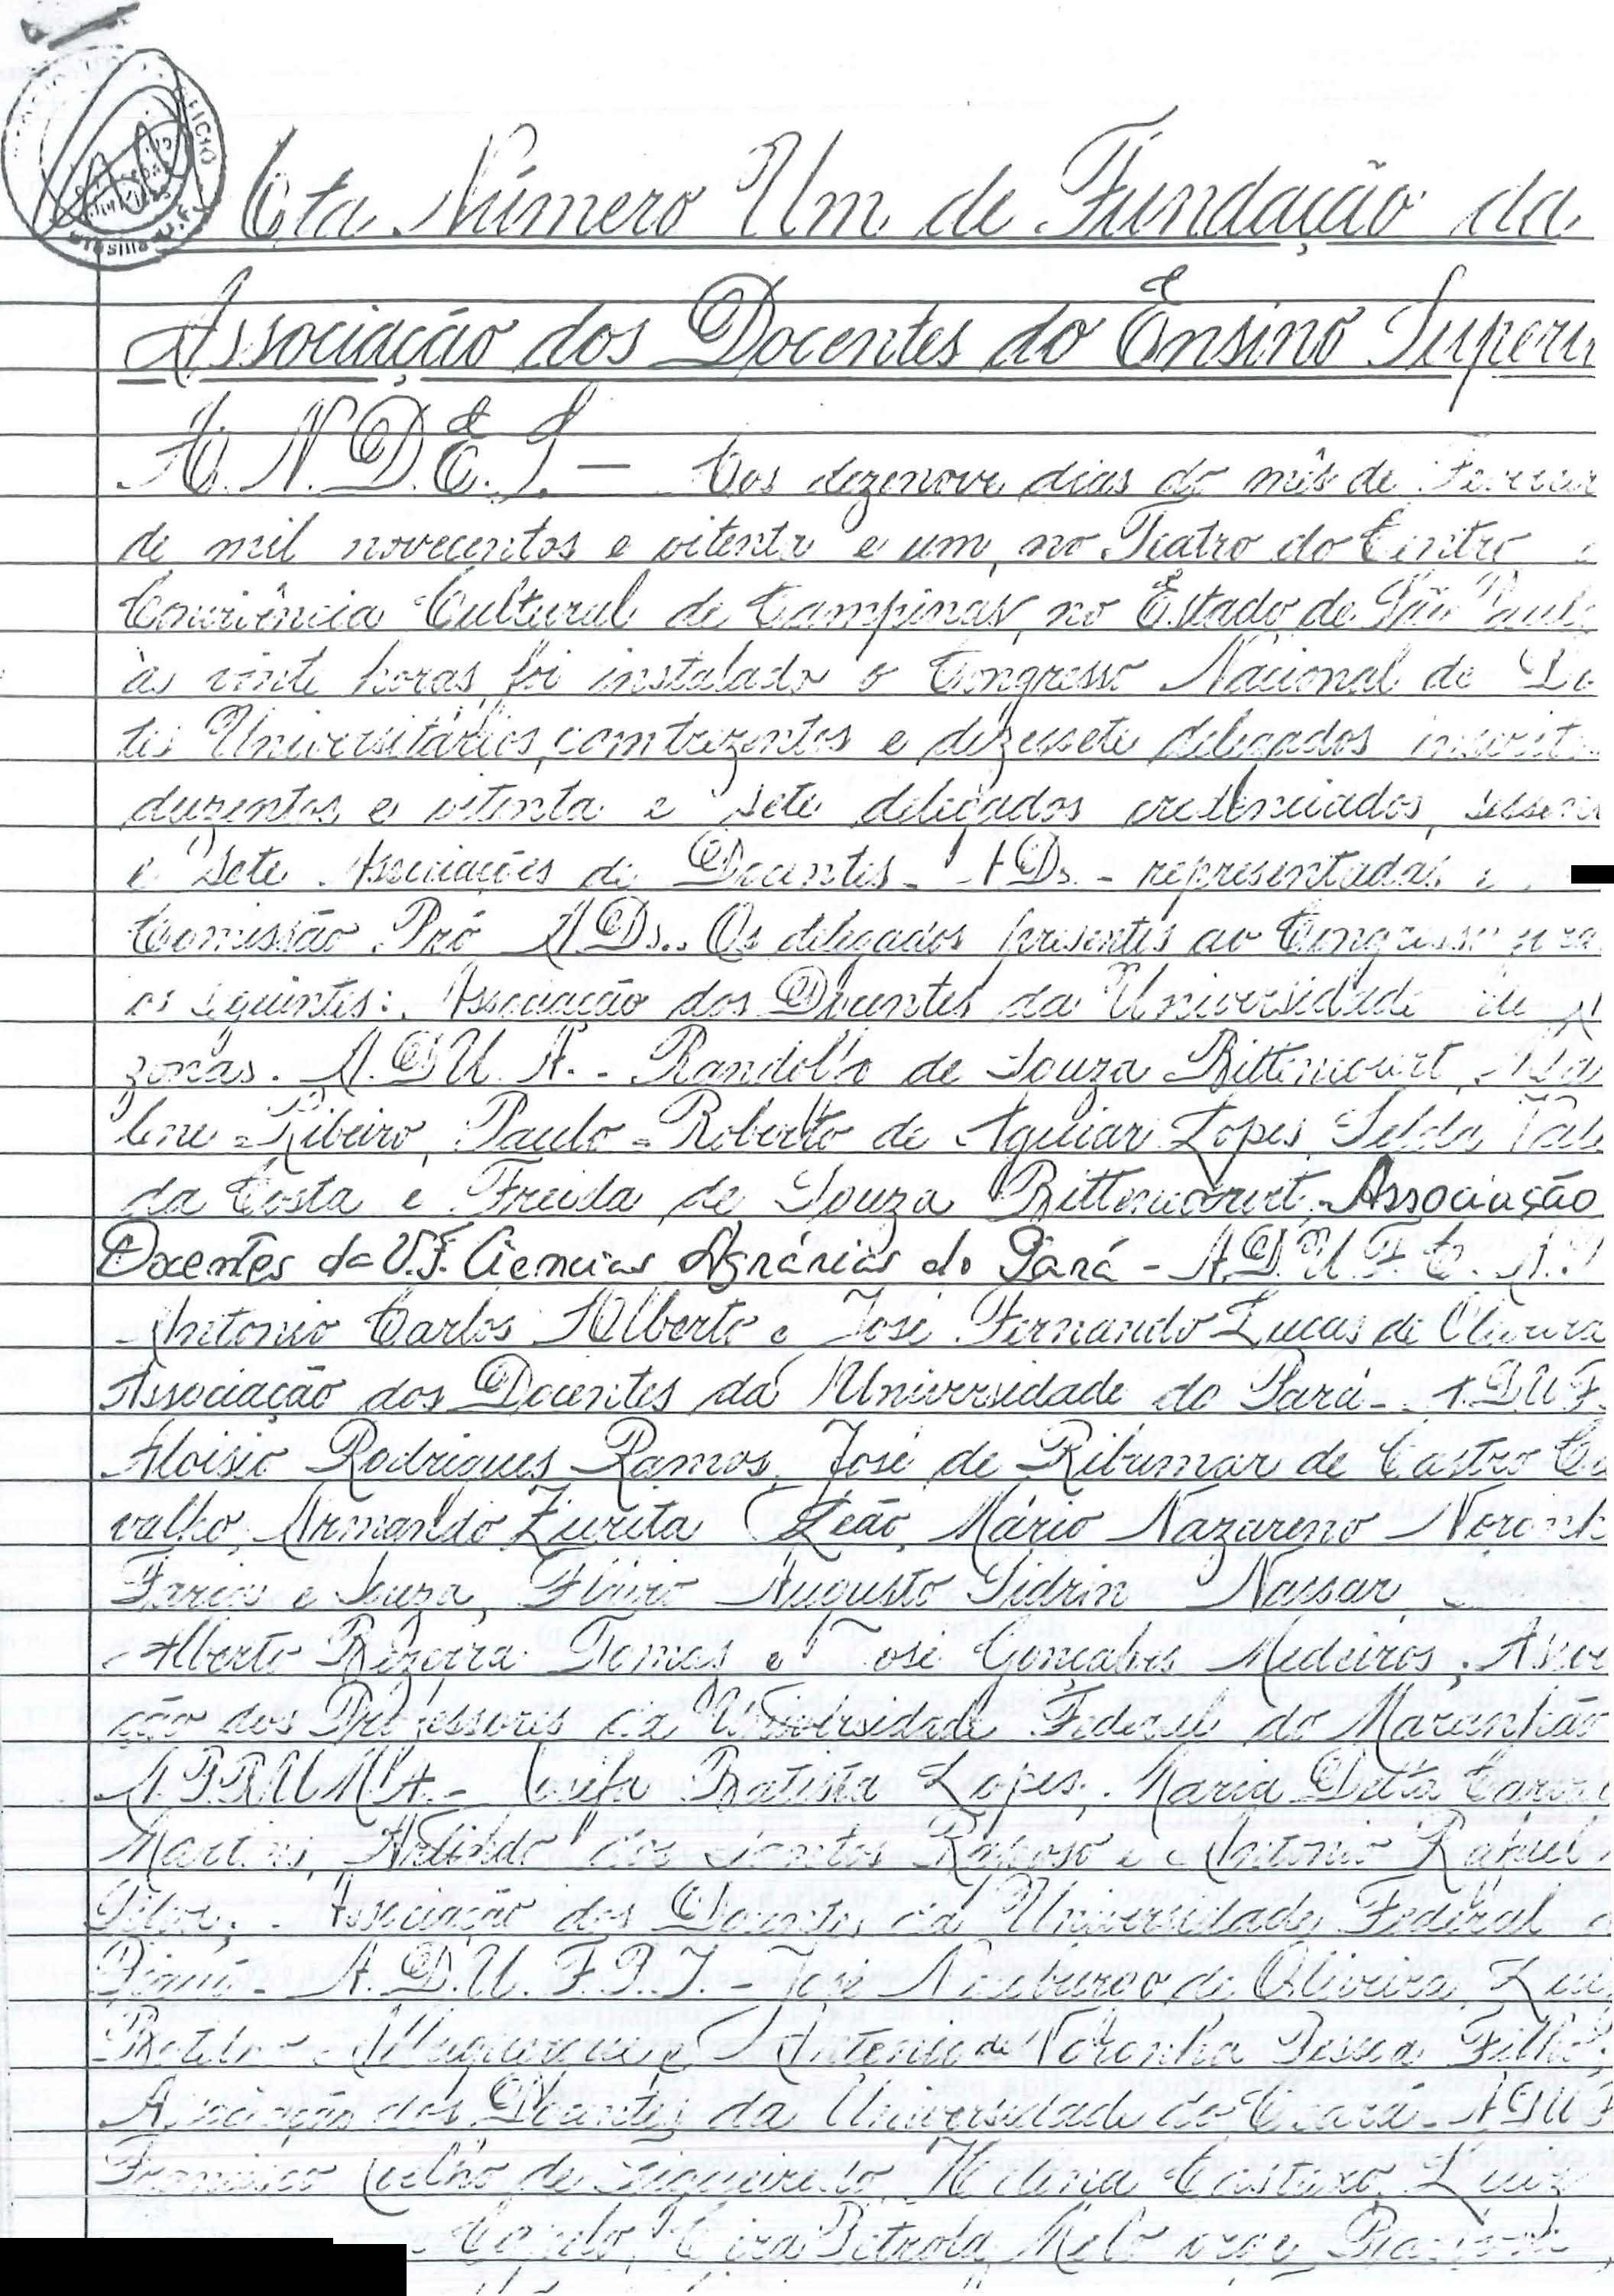 Ata Número Um de Fundação da
Associação dos Docentes do Ensino Superi
A.N.D.E.S. — Aos dezenove dias do mês de Feverei
de mil novecentos e oitenta e um, no Teatro do Centro
Convivência Cultural de Campinas, no Estado de São Paulo
às vinte horas, foi instalado o Congresso Nacional de Do
tes Universitários, com trezentos e dezessete delegados inscrit
duzentos e oitenta e sete delegados credenciados, sessen
e sete Associações de Docentes - ADs - representadas e
Comissão Pró ADs.. Os delegados presentes ao Congresso era
os seguintes: Associação dos Docentes da Universidade de
zonas. A.D.U.A. - Randolfo de Souza Bittencourt,
lene Ribeiro, Paulo Roberto de Aguiar Lopes, Selda Vale
da Costa e Freida de Souza Bittencourt, Associação
Docentes da U.F. Ciencias Agrárias do Pará - A.D.U.F.C.A.P
Antonio Carlos Alberto e José Fernando Lucas de Oliveira
Associação dos Docentes da Universidade do Pará - A.D.U.F.
Aloisio Rodrigues Ramos, José de Ribamar de Castro Ca
valho, Armando Zurita Leão, Mário Nazareno Noronh
Farias e Souza, Flávio Augusto Sidrin Nassar
Alberto Bezerra Tomaz e José Gonçalves Medeiros; Assoc
ção dos Professores da Universidade Federal do Maranhão
A.P.R.U.M.A. - Batista Lopes, Maria Délta
Martins, Arlindo dos Santos Raposo e Antonio Rafael
Silva; Associação dos Docentes da Universidade Federal
Piauí - A.D.U.F.P.I. - José de Oliveira, Luiz
Albuquerque e Antonio de Noronha Pessoa Filho;
Associação dos Docentes da Universidade do Ceará - ADUF
Francisco Coelho de Figueiredo, Helena Castaxo, Luiz
Petrola Melo